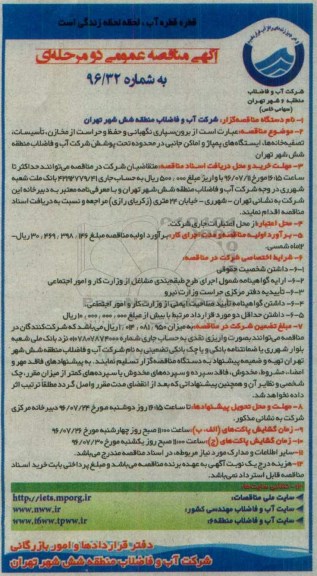 قطره قطره آب، لحظه لحظه زندگی است
آگهی مناقصه عمومی دو مرحله‌ای
به شماره ۹۶/۳۲
شرکت آب و فاضلاب
منطقه ۶ شهر تهران
(سهامی خاص)
۱- نام دستگاه مناقصه‌گزار: شرکت آب و فاضلاب منطقه شش شهر تهران
۲- موضوع مناقصه: عبارت است از برون‌سپاری نگهبانی و حفظ و حراست از مخازن، تأسیسات،
تصفیه‌خانه‌ها، ایستگاه‌های پمپاژ و اماکن جانبی در محدوده تحت پوشش شرکت آب و فاضلاب منطقه
شش شهر تهران
۳- مهلت خرید و محل دریافت اسناد مناقصه: متقاضیان شرکت در مناقصه می‌توانند حداکثر تا
ساعت ۱۶:۱۵ مورخ ۹۶/۰۷/۱۱ با واریز مبلغ ۵۰۰,۰۰۰ ریال به حساب جاری بانک ملت شعبه
شهرری در وجه شرکت آب و فاضلاب منطقه شش شهر تهران و با معرفی‌نامه معتبر به دبیرخانه این
شرکت به نشانی تهران - شهرری - خیابان ۲۴ متری (زکریای رازی) مراجعه و نسبت به دریافت اسناد
مناقصه اقدام نمایند.
۴- محل اعتبار: از محل اعتبارات جاری شرکت.
۵- برآورد اولیه مناقصه و مدت اجرای کار: برآورد اولیه مناقصه مبلغ ۳۰,۴۶۹,۳۹۸,۱۳۶ ریال -
۱۲ماه شمسی.
۶- شرایط اختصاصی شرکت در مناقصه:
۶-۱- داشتن شخصیت حقوقی
۶-۲- ارایه گواهینامه شمول اجرای طرح طبقه‌بندی مشاغل از وزارت کار و امور اجتماعی
۶-۳- تأییدیه دفتر مرکزی حراست وزارت نیرو
۶-۴- داشتن گواهینامه تأیید صلاحیت ایمنی از وزارت کار و امور اجتماعی.
۶-۵- داشتن حداقل دو مورد قرارداد مرتبط با بیش از مبلغ ۱۰,۰۰۰,۰۰۰,۰۰۰ ریال
۷- مبلغ تضمین شرکت در مناقصه: به میزان ریال می‌باشد که شرکت‌کنندگان در
مناقصه می‌توانند بصورت واریز نقدی به حساب جاری شماره نزد بانک ملی شعبه
بلوار شهرری یا ضمانتنامه بانکی و یا چک بانکی تضمینی به نام شرکت آب و فاضلاب منطقه شش شهر
تهران تهیه و ضمیمه پیشنهاد به دستگاه مناقصه‌گزار تسلیم نمایند. به پیشنهادهای فاقد مهر و
امضاء، مشروط، مخدوش، فاقد سپرده و سپرده‌های مخدوش یا سپرده‌های کمتر از میزان مقرر، چک
شخصی و نظایر آن و همچنین پیشنهاداتی که بعد از انقضای مدت مقرر واصل گردد مطلقاً ترتیب اثر
داده نخواهد شد.
۸- مهلت و محل تحویل پیشنهادها: تا ساعت ۱۶:۱۵ روز دوشنبه مورخ ۹۶/۰۷/۲۴ دبیرخانه مرکزی
شرکت به نشانی مذکور.
۹- زمان گشایش پاکت‌های (الف، ب): ساعت ۱۱:۰۰ صبح روز چهارشنبه مورخ ۹۶/۰۷/۲۶
۱۰- زمان گشایش پاکت‌های (ج): ساعت ۱۱:۰۰ صبح روز یکشنبه مورخ ۹۶/۰۷/۳۰
۱۱- سایر اطلاعات و مدارک مورد نیاز مربوطه، در اسناد مناقصه مندرج می‌باشد.
۱۲- هزینه درج یک نوبت آگهی به عهده برنده مناقصه می‌باشد و مبلغ پرداختی بابت خرید اسناد
مناقصه قابل استرداد نمی‌باشد.
سایت ملی مناقصات: http://iets.mporg.ir
سایت آب و فاضلاب مهندسی کشور: www.nww.ir
سایت آب و فاضلاب منطقه۶: www.t6ww.tpww.ir
دفتر قراردادها و امور بازرگانی
شرکت آب و فاضلاب منطقه شش شهر تهران